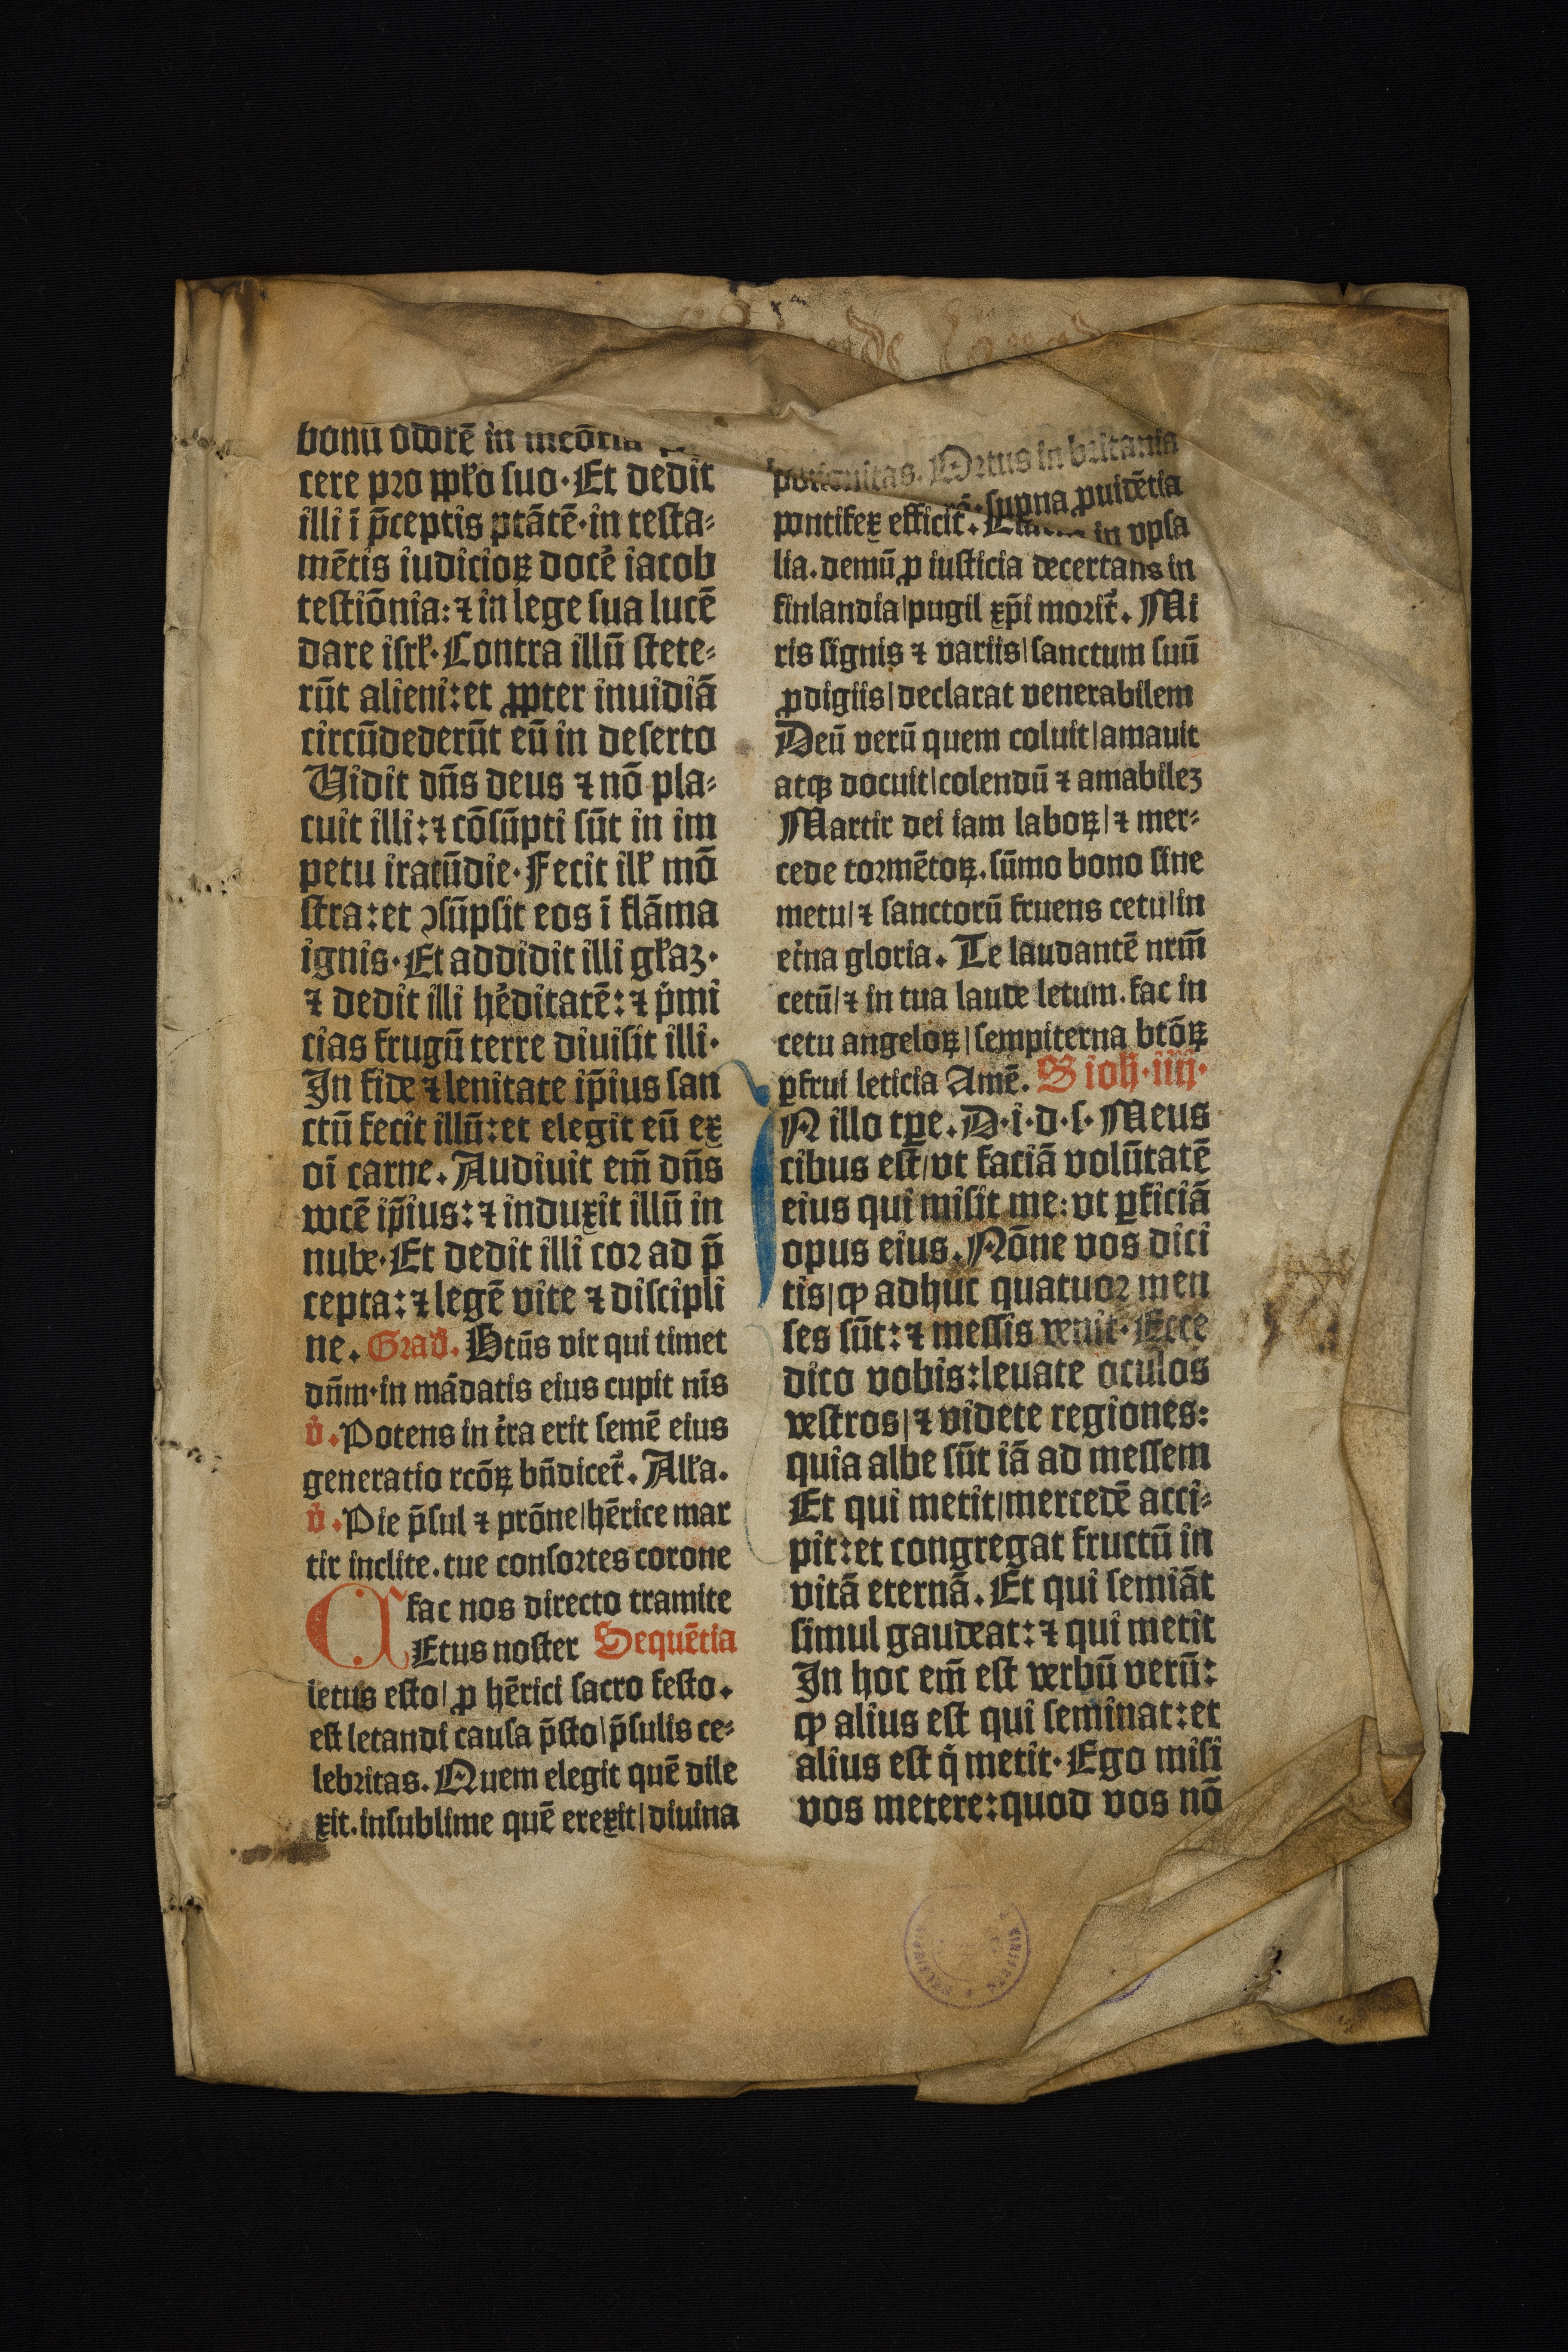 bonū odorē in
cere pro ppło suo· Et dedit
illi ī p̄ceptis ptātē· in testa⸗
mētis iudicioꝝ docē iacob
testiōnia: ⁊ in lege sua lucē
dare isrł· Contra illū stete⸗
rūt alieni: et ꝓpter inuidiā
circūdederūt eū in deserto
Uidit dn̄s deus ⁊ nō pla⸗
cuit illi: ⁊ cōsūpti sūt in im
petu iracūdie· Fecit ill' mō
stra: et ↄsūpsit eos ī flāma
ignis· Et addidit illi głaꝫ·
⁊ dedit illi he᷒ditatē: ⁊ p̍mi
cias frugū terre diuisit illi·
In fide ⁊ lenitate ip̄ius san
ctū fecit illū: et elegit eū ex
oī carne. Audiuit em̄ dn̄s
vocē ip̄ius: ⁊ induxit illū in
nube· Et dedit illi cor ad p̄
cepta: ⁊ legē vite ⁊ discipli
ne. Grad. Btūs vir qui timet
dn̄m· in mādatis eius cupit nīs
v̍. Potens in t̍ra erit semē eius
generatio rcōꝝ bn̄dicet᷒. Ałła.
v̍. Pie p̄sul ⁊ prōne/ hērice mar
tir inclite. tue consortes corone
fac nos directo tramite
CEtus noster Sequētia
letus esto/ ꝓ hērici sacro festo.
est letandi causa p̄sto/ p̄sulis ce⸗
lebritas. Quem elegit quē dile
xit. insublime quē erexit/ diuina
Ortus in britania
supna ꝓuidētia
pontifex efficit᷒. in vpsa
lia. demū ꝓ iusticia decertans in
finlandia/ pugil xp̄i morit᷒. Mi
ris signis ⁊ variis/ sanctum suū
ꝓdigiis/ declarat venerabilem
Deū verū quem coluit/ amauit
atqꝫ docuit/ colendū ⁊ amabileꝫ
Martir dei iam laboꝝ/ ⁊ mer⸗
cede tormētoꝝ. sūmo bono sine
metu/ ⁊ sanctorū fruens cetu/ in
et̍na gloria. Te laudantē nrm̄
cetū/ ⁊ in tua laude letum. fac in
cetu angeloꝝ/ sempiterna btōꝝ
ꝑfrui leticia Amē. S ioh· iiij·
IN illo tꝑe. D· i· d· s· Meus
cibus est/ vt faciā volūtatē
eius qui misit me: vt ꝑficiā
opus eius. Nōne vos dici
tis/ qꝫ adhuc quatuor men
ses sūt: ⁊ messis venit· Ecce
dico vobis: leuate oculos
vestros/ ⁊ videte regiones:
quia albe sūt iā ad messem
Et qui metit/ mercedē acci⸗
pit: et congregat fructū in
vitā eternā. Et qui semīat
simul gaudeat: ⁊ qui metit
In hoc em̄ est verbū verū:
qꝫ alius est qui seminat: et
alius est q̍ metit· Ego misi
vos metere: quod vos nō